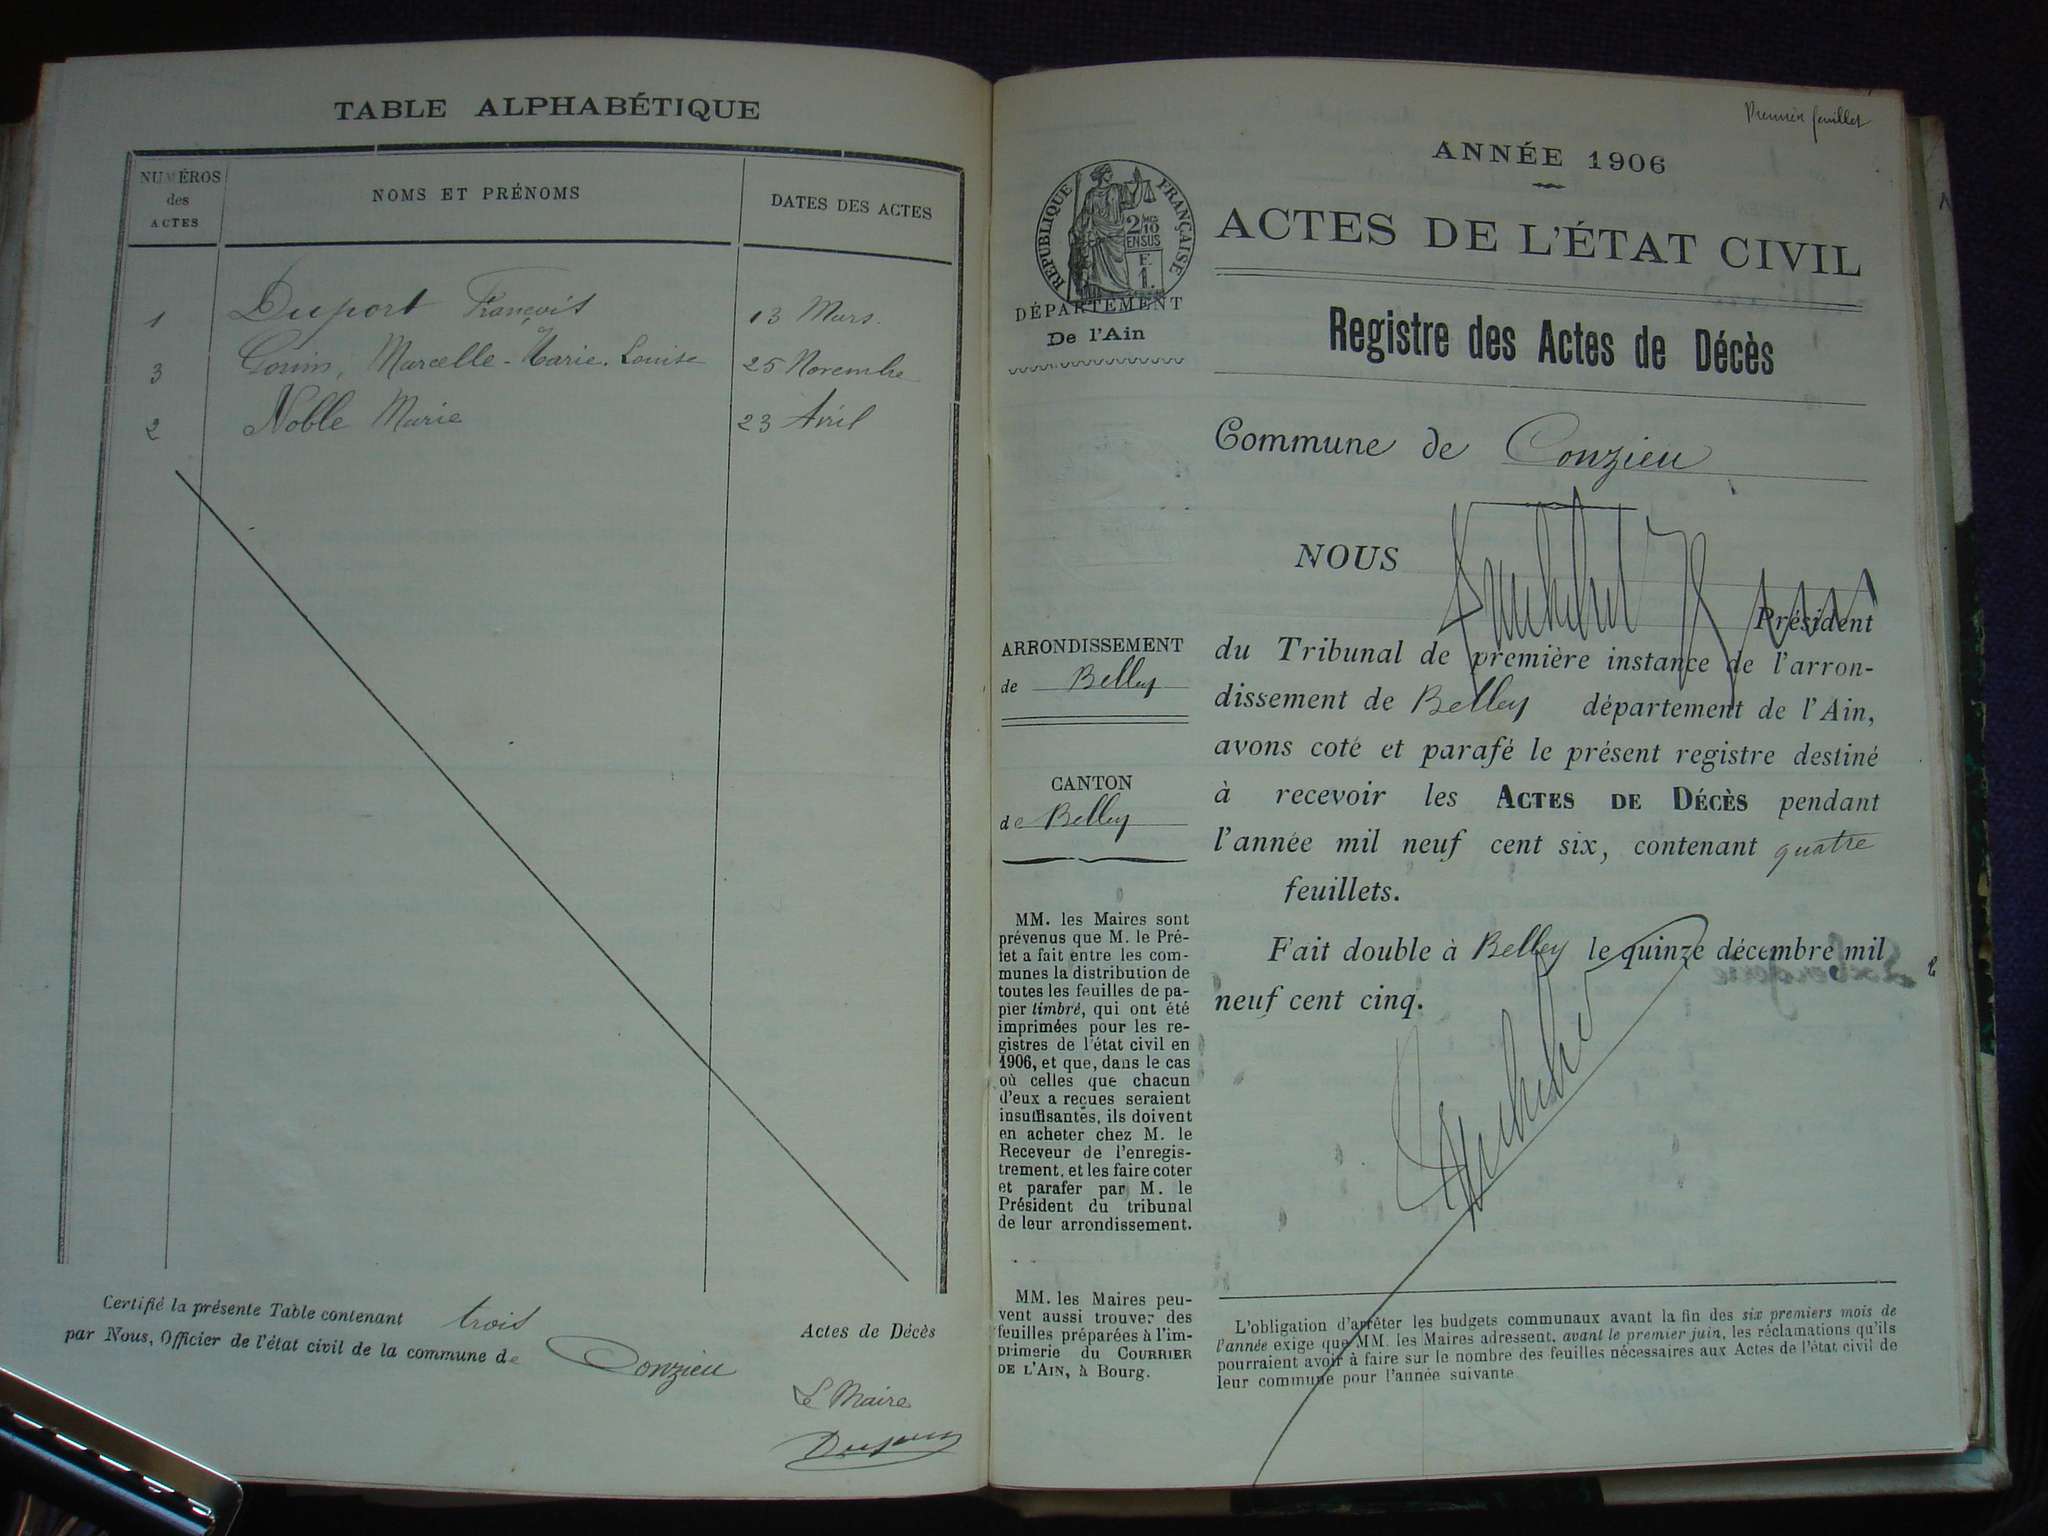 TABLE ALPHABÉTIQUE
NUMÉROS
des
ACTES
NOMS ET PRÉNOMS
DATES DES ACTES
1 Duport François 13 Mars.
3 Marcelle-Marie-Louise 25 Novembre
2 Noble Marie 23 Avril
Certifié la présente Table contenant trois Actes de Décès
par Nous, Officier de l'état civil de la commune de Conzieu
Le Maire
Premier feuillet
ANNÉE 1906
RÉPUBLIQUE FRANÇAISE
2/10
EN SUS
F.
1.
DÉPARTEMENT
De l'Ain
ACTES DE L'ÉTAT CIVIL
Registre des Actes de Décès
Commune de Conzieu
ARRONDISSEMENT
de Belley
CANTON
de Belley
MM. les Maires sont
prévenus que M. le Pré-
fet a fait entre les com-
munes la distribution de
toutes les feuilles de pa-
pier timbré, qui ont été
imprimées pour les re-
gistres de l'état civil en
1906, et que, dans le cas
où celles que chacun
d'eux a reçues seraient
insuffisantes, ils doivent
en acheter chez M. le
Receveur de l'enregis-
trement, et les faire coter
et parafer par M. le
Président du tribunal
de leur arrondissement.
MM. les Maires peu-
vent aussi trouver des
feuilles préparées à l'im-
primerie du COURRIER
DE L'AIN, à Bourg.
NOUS
Président
du Tribunal de première instance de l'arron-
dissement de Belley département de l'Ain,
avons coté et parafé le présent registre destiné
à recevoir les ACTES DE DÉCÈS pendant
l'année mil neuf cent six, contenant quatre
feuillets.
Fait double à Belley le quinze décembre mil
neuf cent cinq.
L'obligation d'arrêter les budgets communaux avant la fin des six premiers mois de
l'année exige que MM. les Maires adressent, avant le premier juin, les réclamations qu'ils
pourraient avoir à faire sur le nombre des feuilles nécessaires aux Actes de l'état civil de
leur commune pour l'année suivante